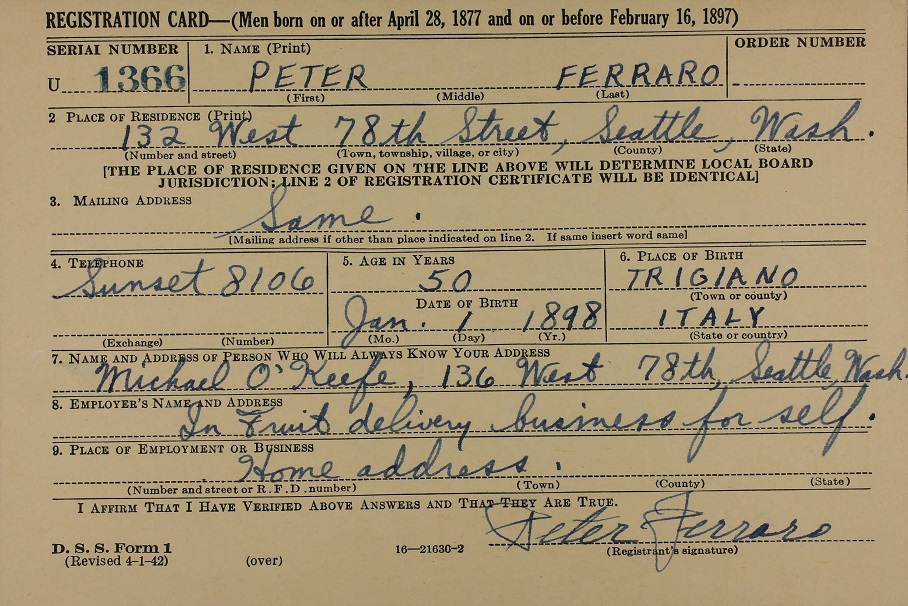 REGISTRATION CARD—(Men born on or after April 28, 1877 and on or before February 16, 1897)
SERIAL NUMBER 1. NAME (Print) ORDER NUMBER
U 1366 PETER FERRARO
(First) (Middle) (Last)
2 PLACE OF RESIDENCE (Print)
132 West 78th Street, Seattle, Wash.
(Number and street) (Town, township, village, or city) (County) (State)
[THE PLACE OF RESIDENCE GIVEN ON THE LINE ABOVE WILL DETERMINE LOCAL BOARD
JURISDICTION; LINE 2 OF REGISTRATION CERTIFICATE WILL BE IDENTICAL]
3. MAILING ADDRESS
Same.
[Mailing address if other than place indicated on line 2. If same insert word same]
4. TELEPHONE 5. AGE IN YEARS 6. PLACE OF BIRTH
Sunset 8106 50 TRIGIANO
DATE OF BIRTH (Town or county)
Jan. 1 1898 ITALY
(Exchange) (Number) (Mo.) (Day) (Yr.) (State or country)
7. NAME AND ADDRESS OF PERSON WHO WILL ALWAYS KNOW YOUR ADDRESS
Michael O'Keefe, 136 West 78th, Seattle, Wash.
8. EMPLOYER'S NAME AND ADDRESS
In Fruit delivery business for self.
9. PLACE OF EMPLOYMENT OR BUSINESS
Home address.
(Number and street or R. F. D. number) (Town) (County) (State)
I AFFIRM THAT I HAVE VERIFIED ABOVE ANSWERS AND THAT THEY ARE TRUE.
Peter Ferraro
D. S. S. Form 1 16—21630-2 (Registrant's signature)
(Revised 4-1-42) (over)